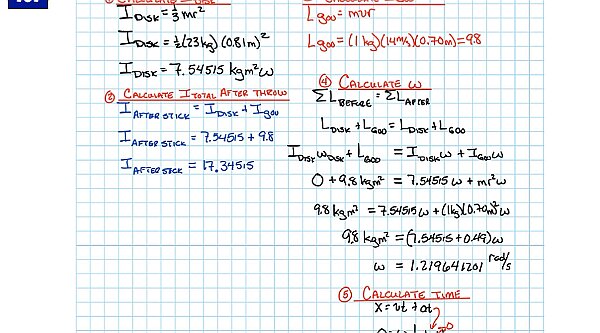 I DISK = 1/3 mr²
I DISK = 1/2 (23 kg) (0.81m)²
I DISK = 7.54515 kgm²ω
② CALCULATE I TOTAL AFTER THROW
I AFTER STICK = I DISK + I goo
I AFTER STICK = 7.54515 + 9.8
I AFTER STICK = 17.34515
L goo = mvr
L goo = (1 kg)(14 m/s)(0.70m) = 9.8
④ CALCULATE ω
ΣL BEFORE = ΣL AFTER
L DISK + L GOO = L DISK + L GOO
I DISK ω DISK + L GOO = I DISK ω + I GOO ω
0 + 9.8 kgm² = 7.54515 ω + mr²ω
9.8 kgm² = 7.54515 ω + (1kg)(0.70m)²ω
9.8 kgm² = (7.54515 + 0.49) ω
ω = 1.219641201 rad/s
⑤ CALCULATE TIME